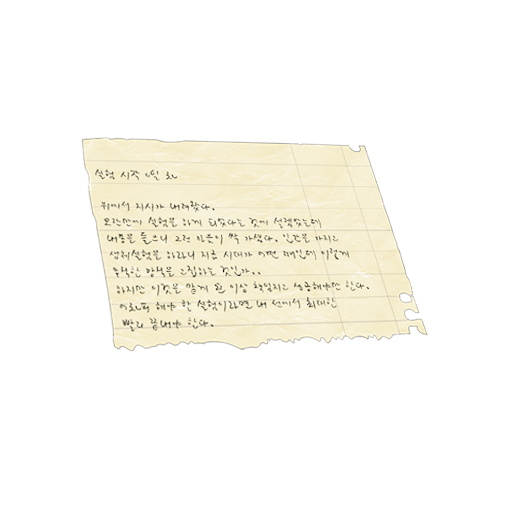 실험 시작 1일 차
위에서 지시가 내려왔다.
오랜만에 실험을 하게 되었다는 것에 설렜었는데
내용을 들으니 그런 마음이 싹 가셨다. 인간을 가지고
생체실험을 하라니 지금 시대가 어떤 때인데 이렇게
무식한 방식을 고집하는 것인가..
하지만 이것을 맡게 된 이상 책임지고 성공해야만 한다.
어차피 해야 할 실험이라면 내 선에서 최대한
빨리 끝내야 한다.